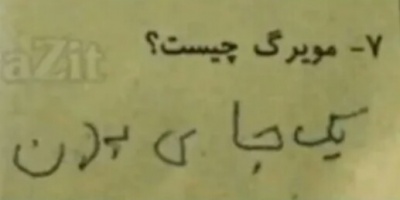 ۷- مویرگ چیست؟
aZit
یک جا ی بدن